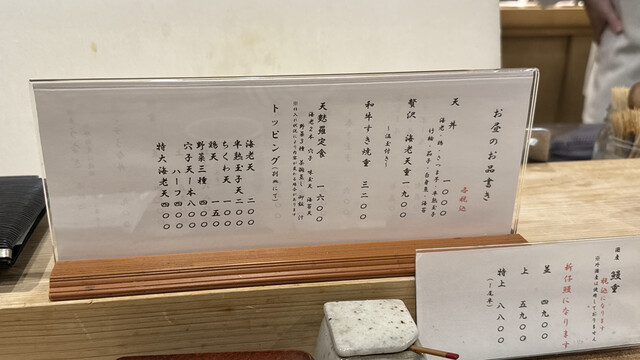 お昼のお品書き
天丼 一〇〇〇
税込
贅沢 海老天重 一九〇〇
和牛すき焼重 三二〇〇
〜温玉付き〜
天麩羅定食 一六〇〇
海老2本 穴子
野菜3種 茶碗蒸し 御飯 汁
トッピング(別皿にて)
海老天 二〇〇
半熟玉子天 二〇〇
ちくわ天 一〇〇
鶏天 一五〇
野菜三種 四〇〇
穴子天一本 八〇〇
ハーフ 四〇〇
特大海老天 四〇〇
国産 鰻重
税込になります
新仔鰻になります
並 四九〇〇
上 五九〇〇
特上 八八〇〇
(一尾半)